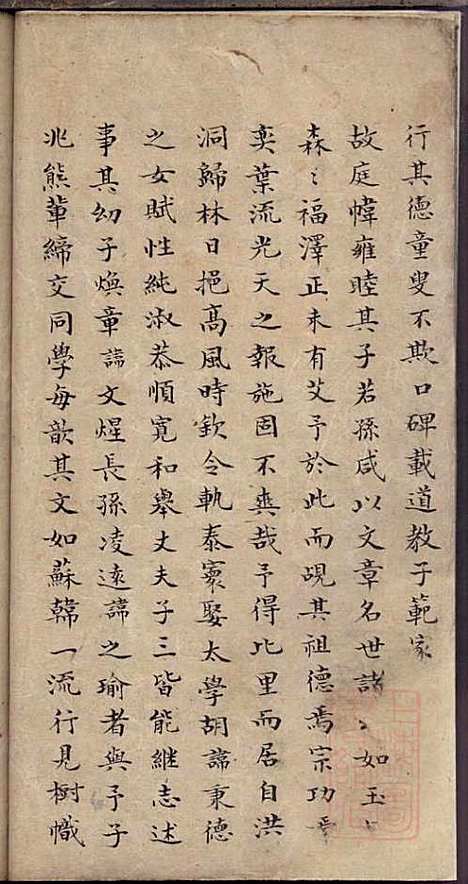 行其德童叟不欺口碑載道教子範家
故庭幃雍睦其子若孫咸以文章名世諸〻如玉
森〻福澤正未有艾予於此而覘其祖德焉宗功焉
奕葉流光天之報施固不爽哉予得比里而居自洪
洞歸林日挹高風時欽令軌泰寰娶太學胡諱秉德
之女賦性純淑恭順寬和舉丈夫子三皆能繼志述
事其幼子煥章諱文煋長孫凌遠諱之瑜者與予子
兆熊輩締交同學每歆其文如蘇韓一流行見樹幟